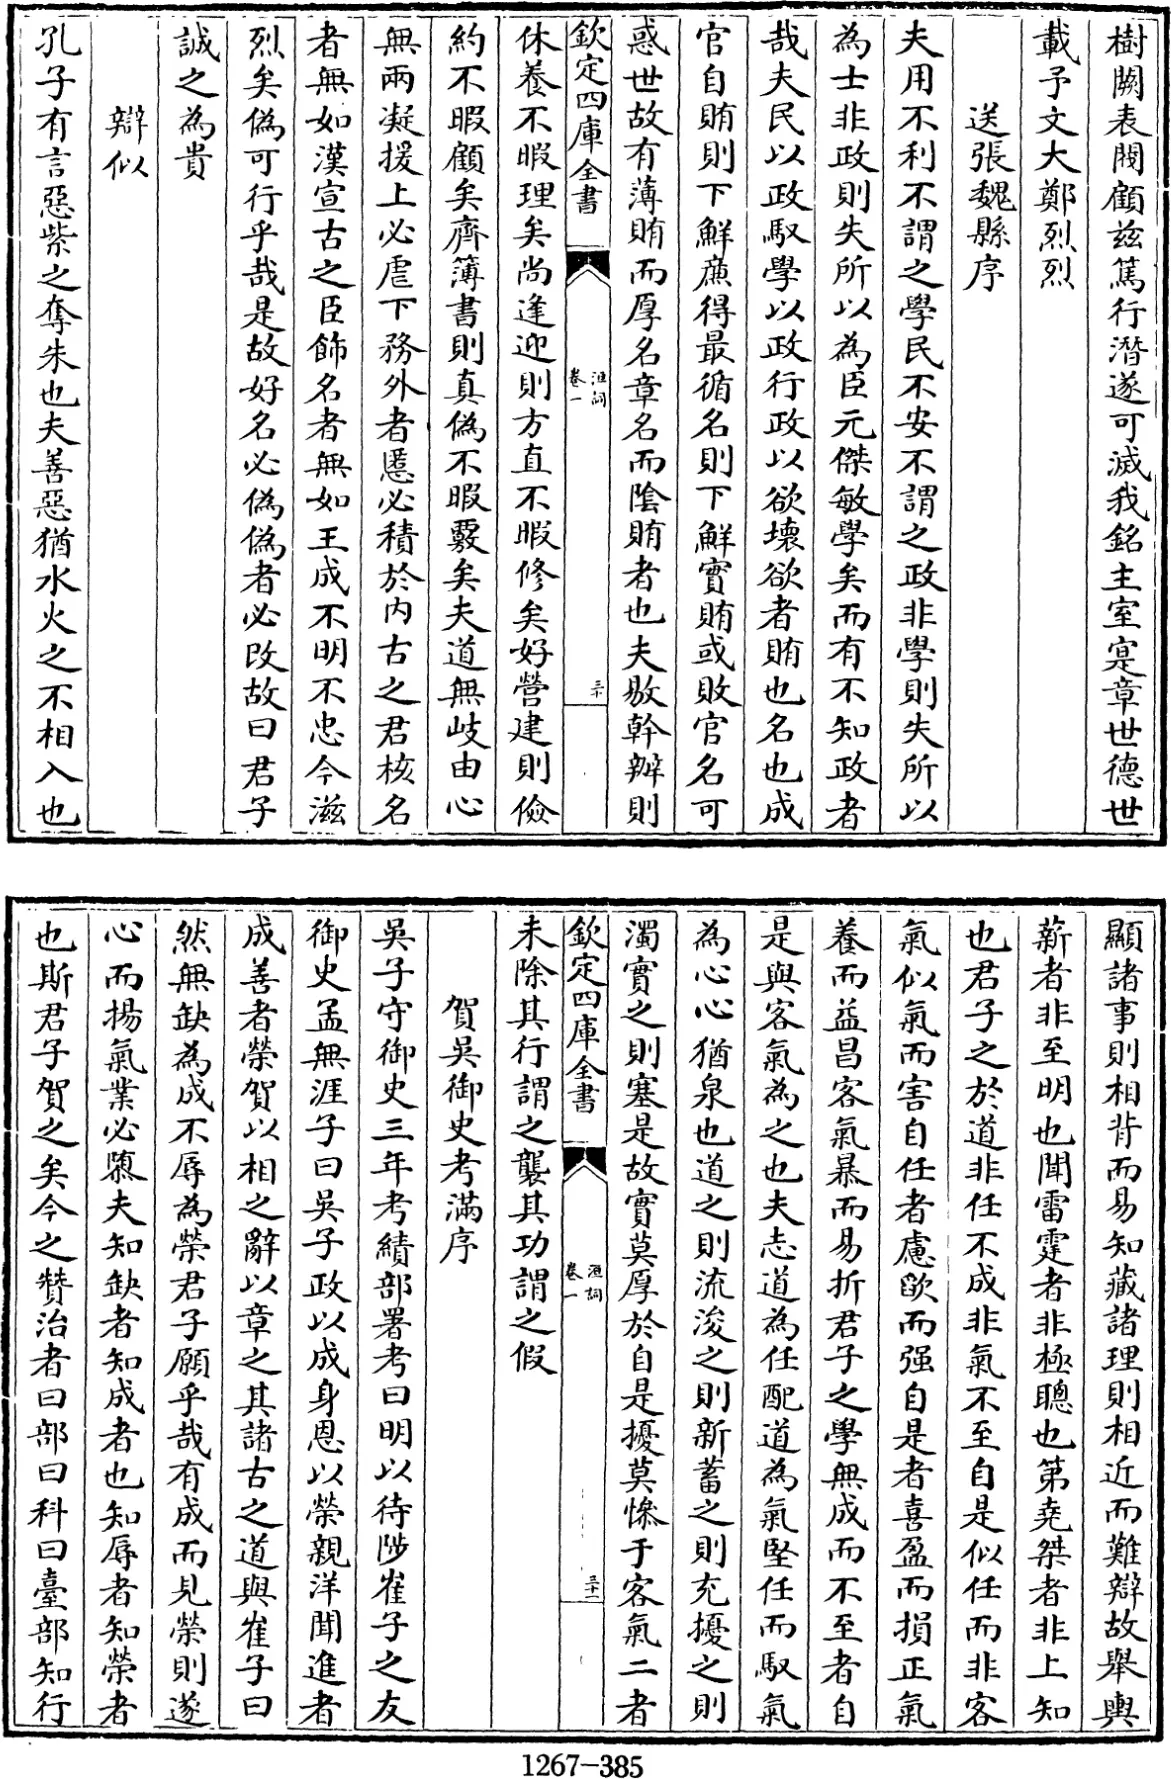 樹闕表閥顧兹篤行潛遂可滅我銘主室寔章世德世
載予文大鄭烈烈
送張魏縣序
夫用不利不謂之學民不安不謂之政非學則失所以
為士非政則失所以為臣元傑敏學矣而有不知政者
哉夫民以政馭學以政行政以欲壞欲者賄也名也成
官自賄則下鮮廉得最循名則下鮮實賄或敗官名可
惑世故有薄賄而厚名章名而陰賄者也夫敭幹辦則
欽定四庫全書
洹詞
卷一
三十
休養不暇理矣尚逢迎則方直不暇修矣好營建則儉
約不暇顧矣齊簿書則真偽不暇覈矣夫道無岐由心
無兩凝援上必虐下務外者慝必積於内古之君核名
者無如漢宣古之臣飾名者無如王成不明不忠今滋
烈矣偽可行乎哉是故好名必偽偽者必敗故曰君子
誠之為貴
辯似
孔子有言惡紫之奪朱也夫善惡猶水火之不相入也
顯諸事則相背而易知藏諸理則相近而難辯故舉輿
薪者非至明也聞雷霆者非極聰也第堯桀者非上知
也君子之於道非任不成非氣不至自是似任而非客
氣似氣而害自任者慮歛而强自是者喜盈而損正氣
養而益昌客氣暴而易折君子之學無成而不至者自
是與客氣為之也夫志道為任配道為氣堅任而馭氣
為心心猶泉也道之則流浚之則新蓄之則充擾之則
濁實之則塞是故實莫厚於自是擾莫慘于客氣二者
欽定四庫全書
洹詞
卷一
三十一
未除其行謂之襲其功謂之假
賀吳御史考滿序
吳子守御史三年考績部署考曰明以待陟崔子之友
御史孟無涯子曰吳子政以成身恩以榮親洋聞進者
成善者榮賀以相之辭以章之其諸古之道與崔子曰
然無缺為成不辱為榮君子願乎哉有成而見榮則遂
心而揚氣業必隳夫知缺者知成者也知辱者知榮者
也斯君子賀之矣今之贊治者曰部曰科曰臺部知行
1267-385